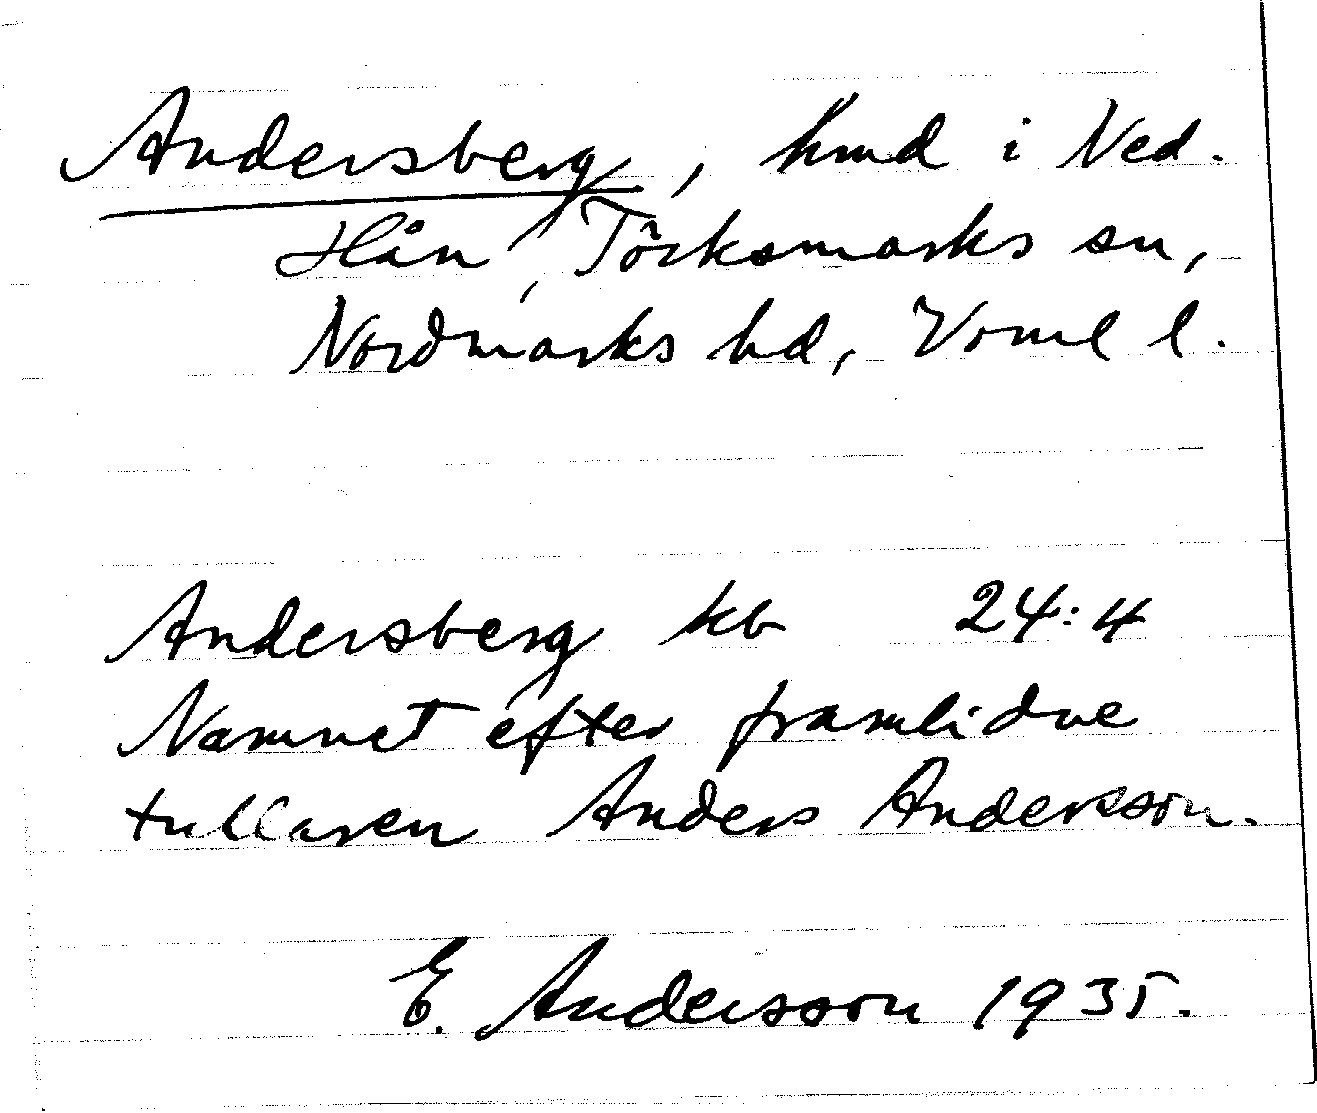 Andersberg, hmd i Ned.
Hån, Töcksmarks sn,
Nordmarks hd, Vrml l.
Andersberg kb 24:4
Namnet efter framlidne
tullaren Anders Andersson.
E. Andersson 1935.